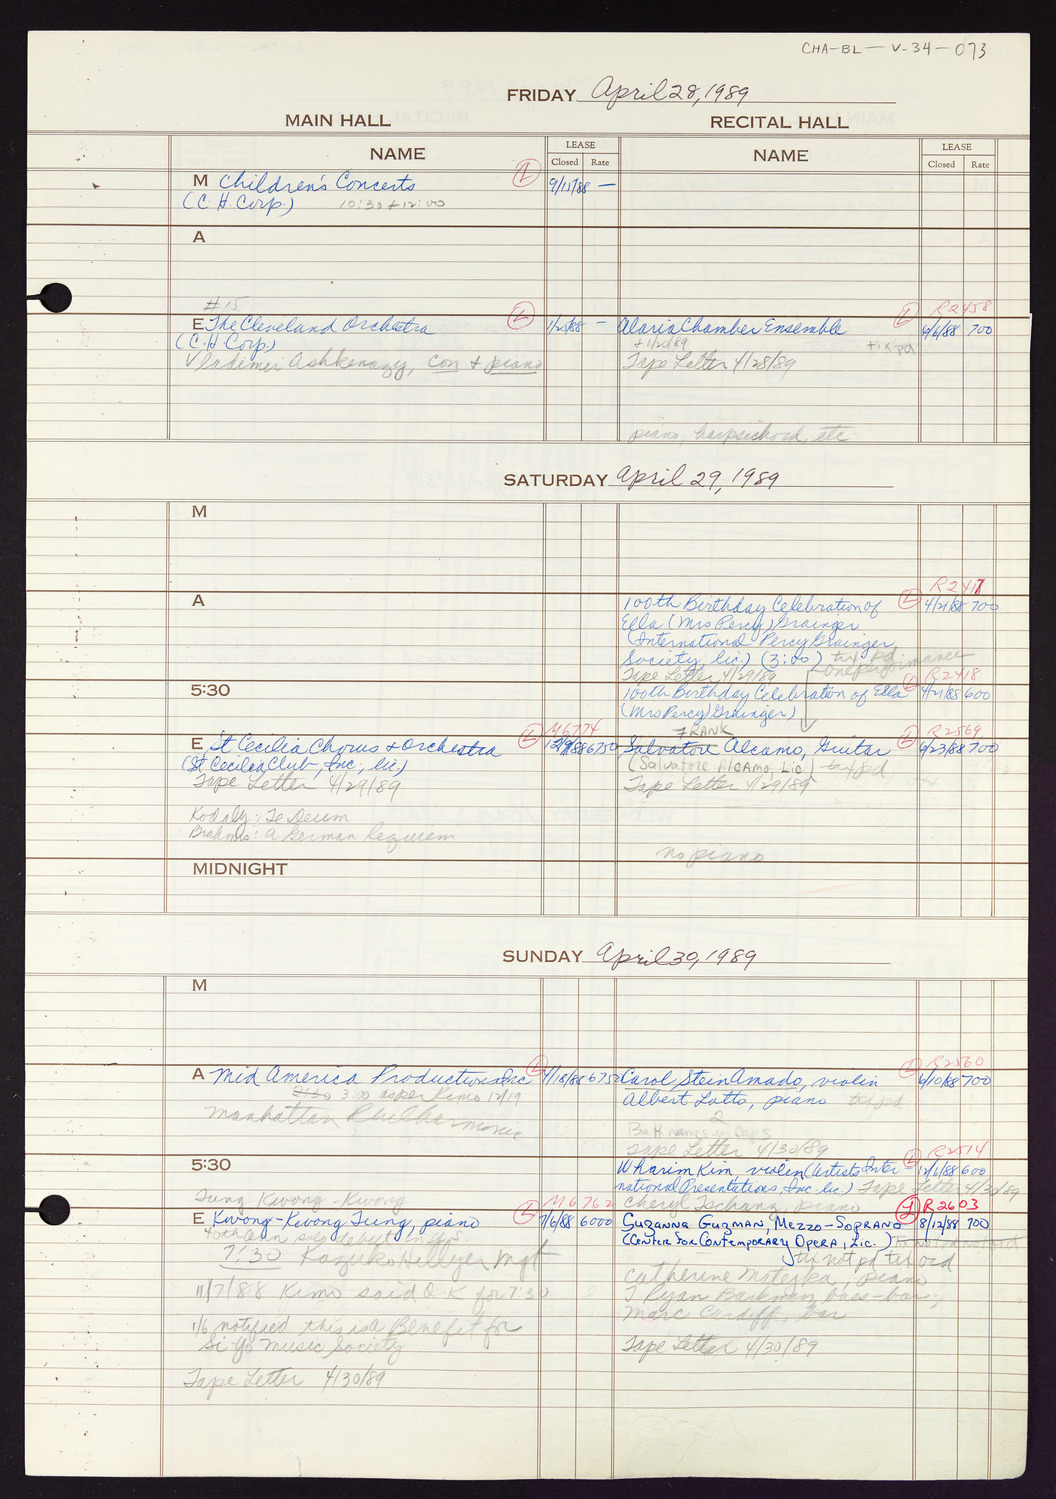 CHA-BL-V-34-073
FRIDAY April 28, 1989
MAIN HALL
RECITAL HALL
NAME
LEASE
Closed Rate
NAME
LEASE
Closed Rate
M Children's Concerts L 9/15/88 —
(C.H. Corp.) 10:30 + 12:00
A
#15
E The Cleveland Orchestra L 1/25/88 —
(C.H. Corp.)
Vladimir Ashkenazy, con + piano
R2458
Alaria Chamber Ensemble L 6/6/88 700
+1/20/89 tix pd
Tape Letter 4/28/89
piano, harpsichord, etc
SATURDAY April 29, 1989
M
A
R2417
100th Birthday Celebration of L 4/21/88 700
Ella (Mrs Percy) Grainger
(International Percy Grainger
Society, lic.) (3:00) tix pd
Tape Letter 4/29/89 one performance
5:30
R2418
100th Birthday Celebration of Ella L 4/21/88 600
(Mrs Percy) Grainger)
M6774
E St Cecilia Chorus & Orchestra L 12/9/88 6750
(St Cecilia Club, Inc., lic)
Tape Letter 4/29/89
Kodaly: Te Deum
Brahms: A German Requiem
FRANK R2569
Salvatore Alcamo, Guitar L 6/23/88 700
(Salvatore Alcamo, Lic) tix pd
Tape Letter 4/29/89
no piano
MIDNIGHT
SUNDAY April 30, 1989
M
A Mid America Productions Inc L 4/18/88 675
2:30 3:00 as per Kimo 12/19
Manhattan Philharmonic
R2560
Carol Stein Amado, violin L 6/10/88 700
Albert Lotto, piano tix pd
2
Both names in Caps
Tape Letter 4/30/89
5:30
R2514
Wharim Kim, violin (Artists Inter L 12/6/88 600
national Presentations, Inc. lic.) Tape Letter 4/30/89
Cheryl Tschanz, piano
Tung Kwong-Kwong M6762
E Kwong-Kwong Tung, piano L 7/6/88 6000
7:30 Kazuko Hillyer Mgt
11/7/88 Kimo said O.K. for 7:30
1/6 notified this is a Benefit for
Si Yo Music Society
Tape Letter 4/30/89
R2603
Suzanna Guzman, Mezzo-Soprano L 8/12/88 700
(Center for Contemporary Opera, Lic.)
tix not pd tix ord
Catherine Matejka, piano
T Ryan Barkman, bass-bar,
Marc Cardiff, bar
Tape Letter 4/30/89